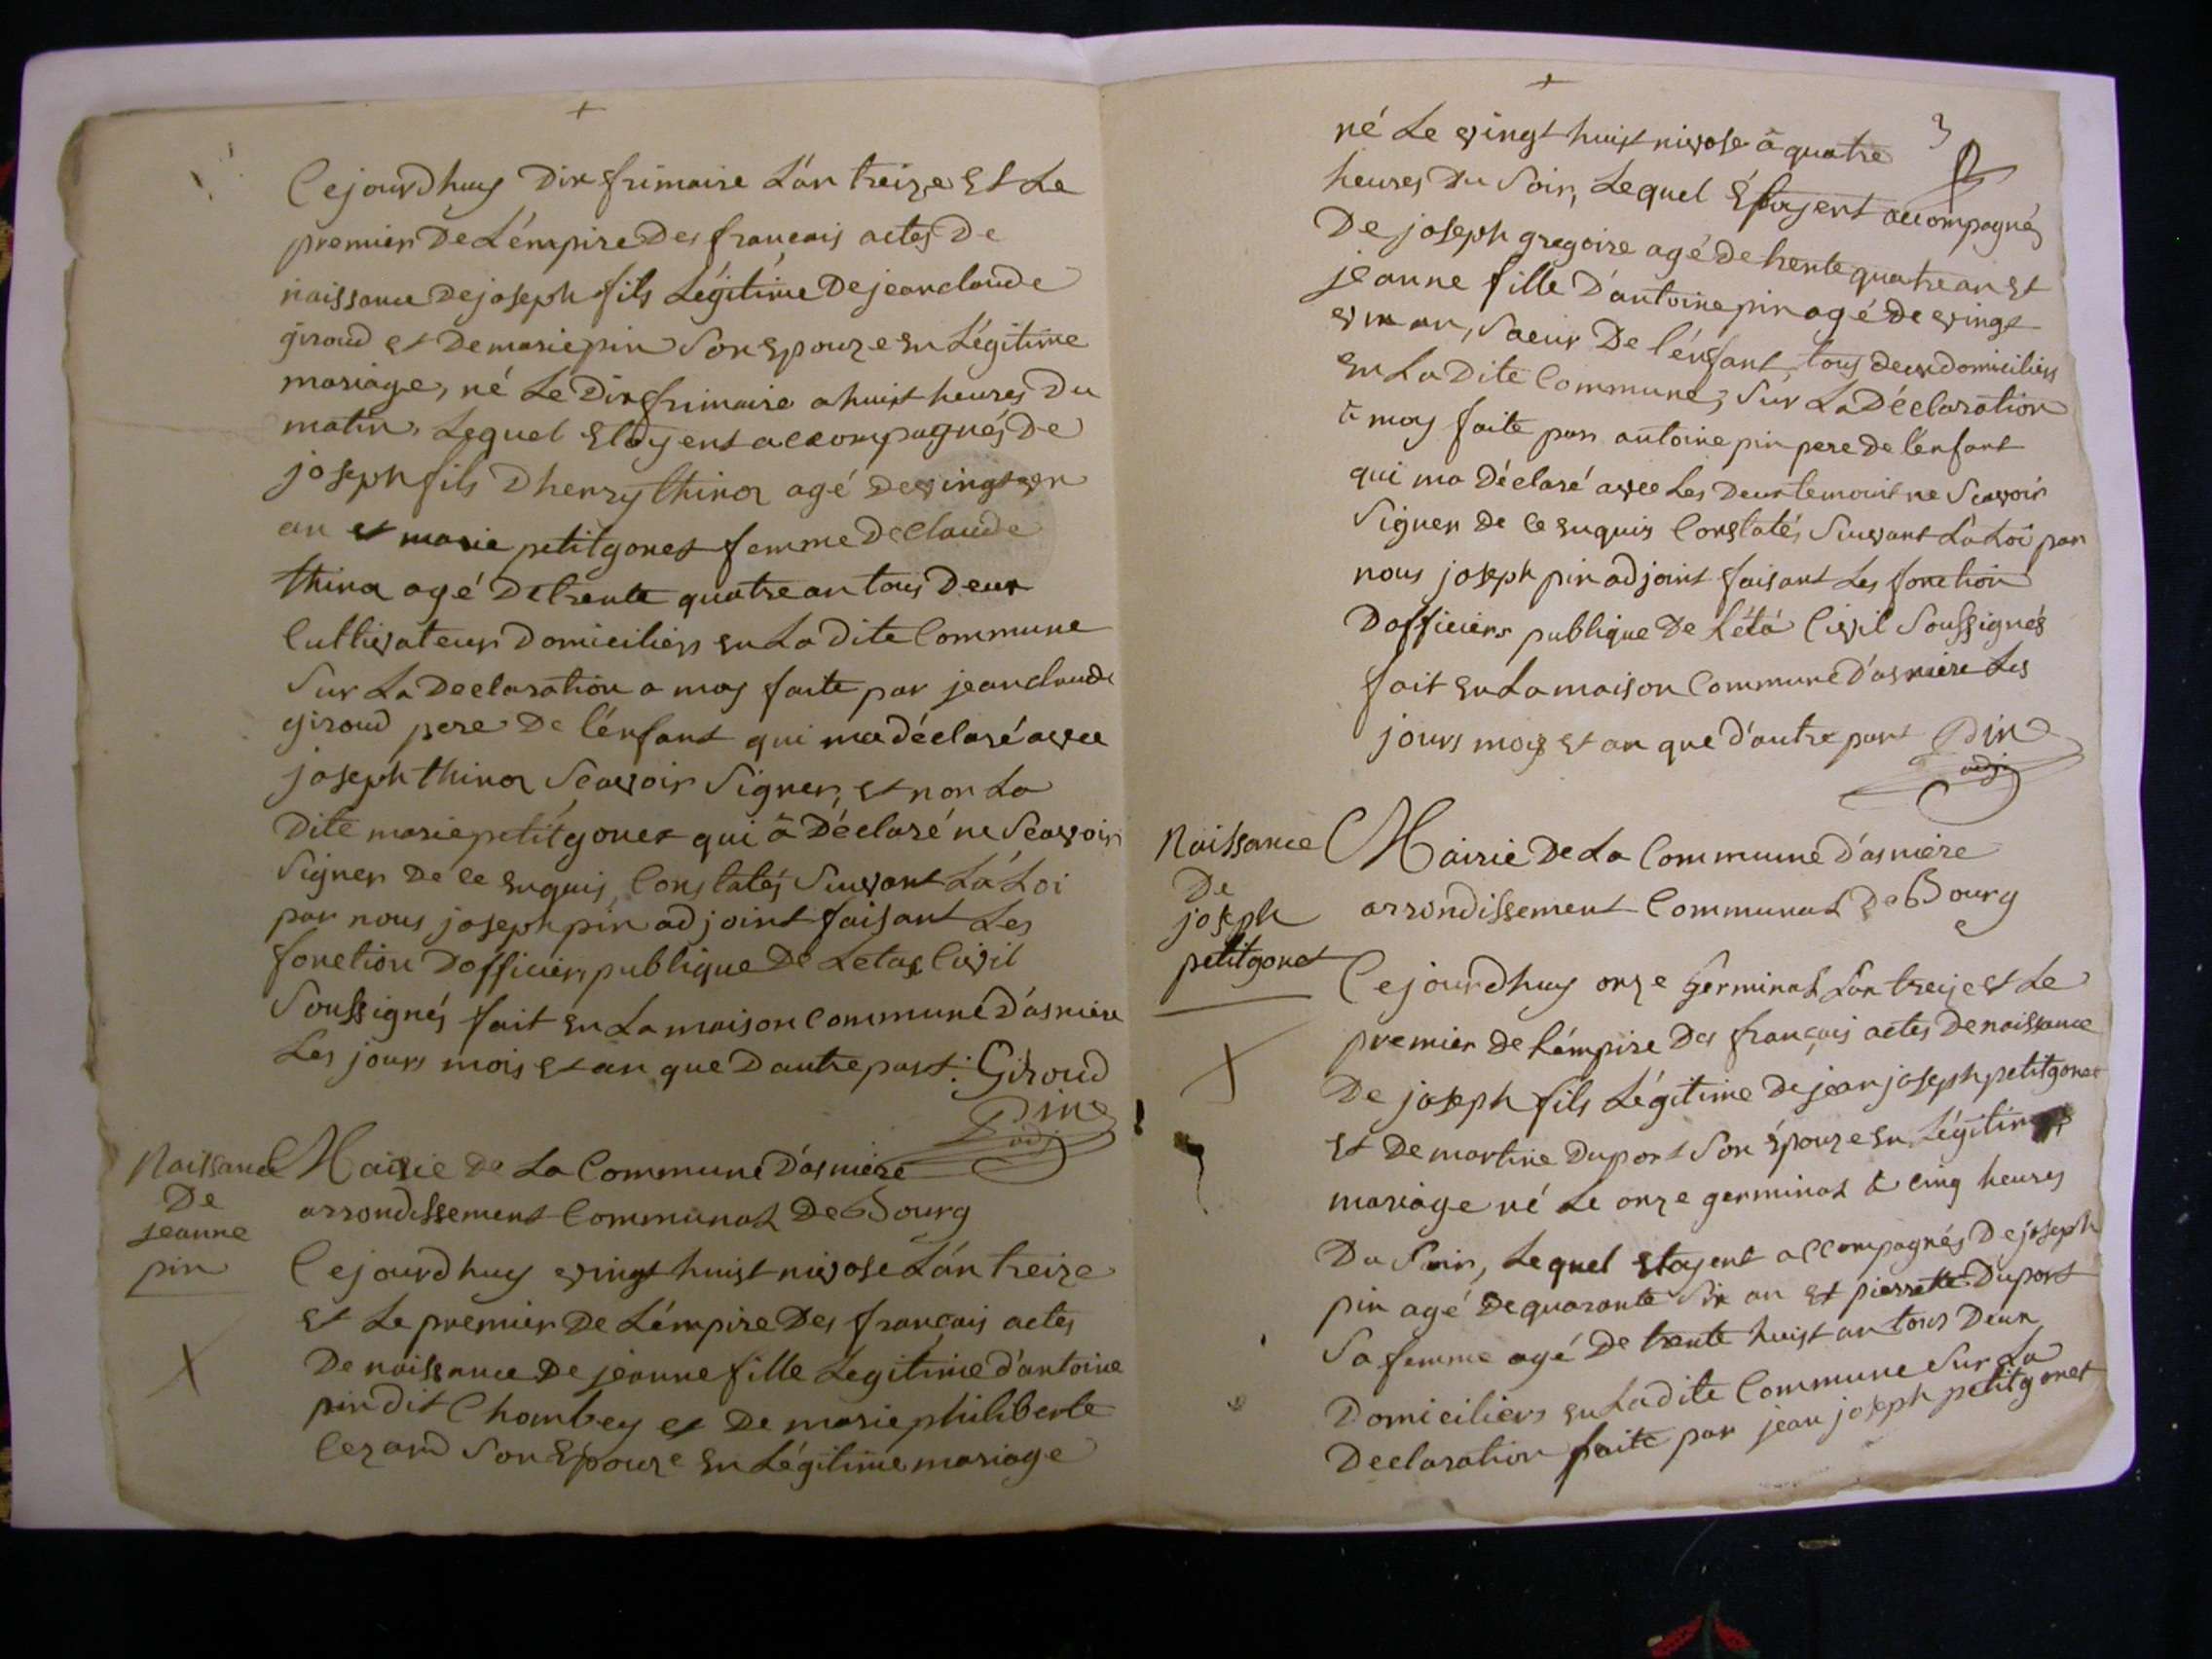 Cejourdhuy Dix frimaire L'an treize Et Le
premier De L'émpire Des français actes De
naissance De joseph fils Légitime De jean claude
giroud et De marie pin Son Epouze En Légitime
mariage, né Le Dix frimaire a huist heures Du
matin, Lequel Etayent accompagnés De
joseph fils Dhenry thina agé De vingt un
an et marie petitgonet femme De Claude
thina agé De trente quatre an tous Deux
Cultivateurs Domiciliers En La Dite Commune
Sur La Declaration a moy faite par jean claude
giroud pere De l'énfant qui ma déclaré avec
joseph thina Scavoir Signer, et non La
Dite marie petitgonet qui à Déclaré ne Scavoir
Signer De ce Enquis, Constatés Suivant La Loi
par nous joseph pin adjoint faisant Les
fonction Dofficiers publique De Letat Civil
Soussignés fait En La maison Commune D'asniere
Les jours mois et an que Dautre part. Giroud
Pin
adj.
Naissance
De
jeanne
pin
Mairie De La Commune D'asniere
arrondissement Communal De Bourg
Cejourdhuy vingt huist nivose L'an treize
Et Le premier De L'émpire Des français actes
De naissance De jeanne fille Legitime d'antoine
pin dit Chambey et De marie philiberte
Cezard Son Epouze En Légitime mariage
3
né Le vingt huist nivose à quatre
heures Du Soir, Lequel Etayent accompagnés
De joseph gregoire agé De trente quatre an Et
jeanne fille D'antoine pin agé De vingt
un an, Soeur De l'énfant, tous deux domiciliers
En La Dite Commune, Sur La Déclaration
à moy faite par antoine pin pere De l'énfant
qui ma Déclaré avec Les Deux temoint ne Scavoir
Signer De ce Enquis Constatés Suivant La Loi par
nous joseph pin adjoint faisant Les fonction
Dofficiers publique De L'état Civil Soussignés
fait En La maison Commune D'asniere Les
jours mois et an que d'autre part Pin
adj.
Naissance
De
joseph
petitgonet
Mairie De La Commune D'asniere
arrondissement Communal De Bourg
Cejourdhuy onze Germinal L'an treize et Le
premier De L'émpire Des français actes De naissance
De joseph fils Légitime De jean joseph petitgonet
Et De martine Duport Son Épouze En Légitime
mariage né Le onze germinal à cinq heures
Du Soir, Lequel Etayent accompagnés De joseph
pin agé De quarante Six an Et pierrette Duport
Sa femme agé De trente huist an tous Deux
Domiciliers En La dite Commune Sur La
Declaration faite par jean joseph petitgonet